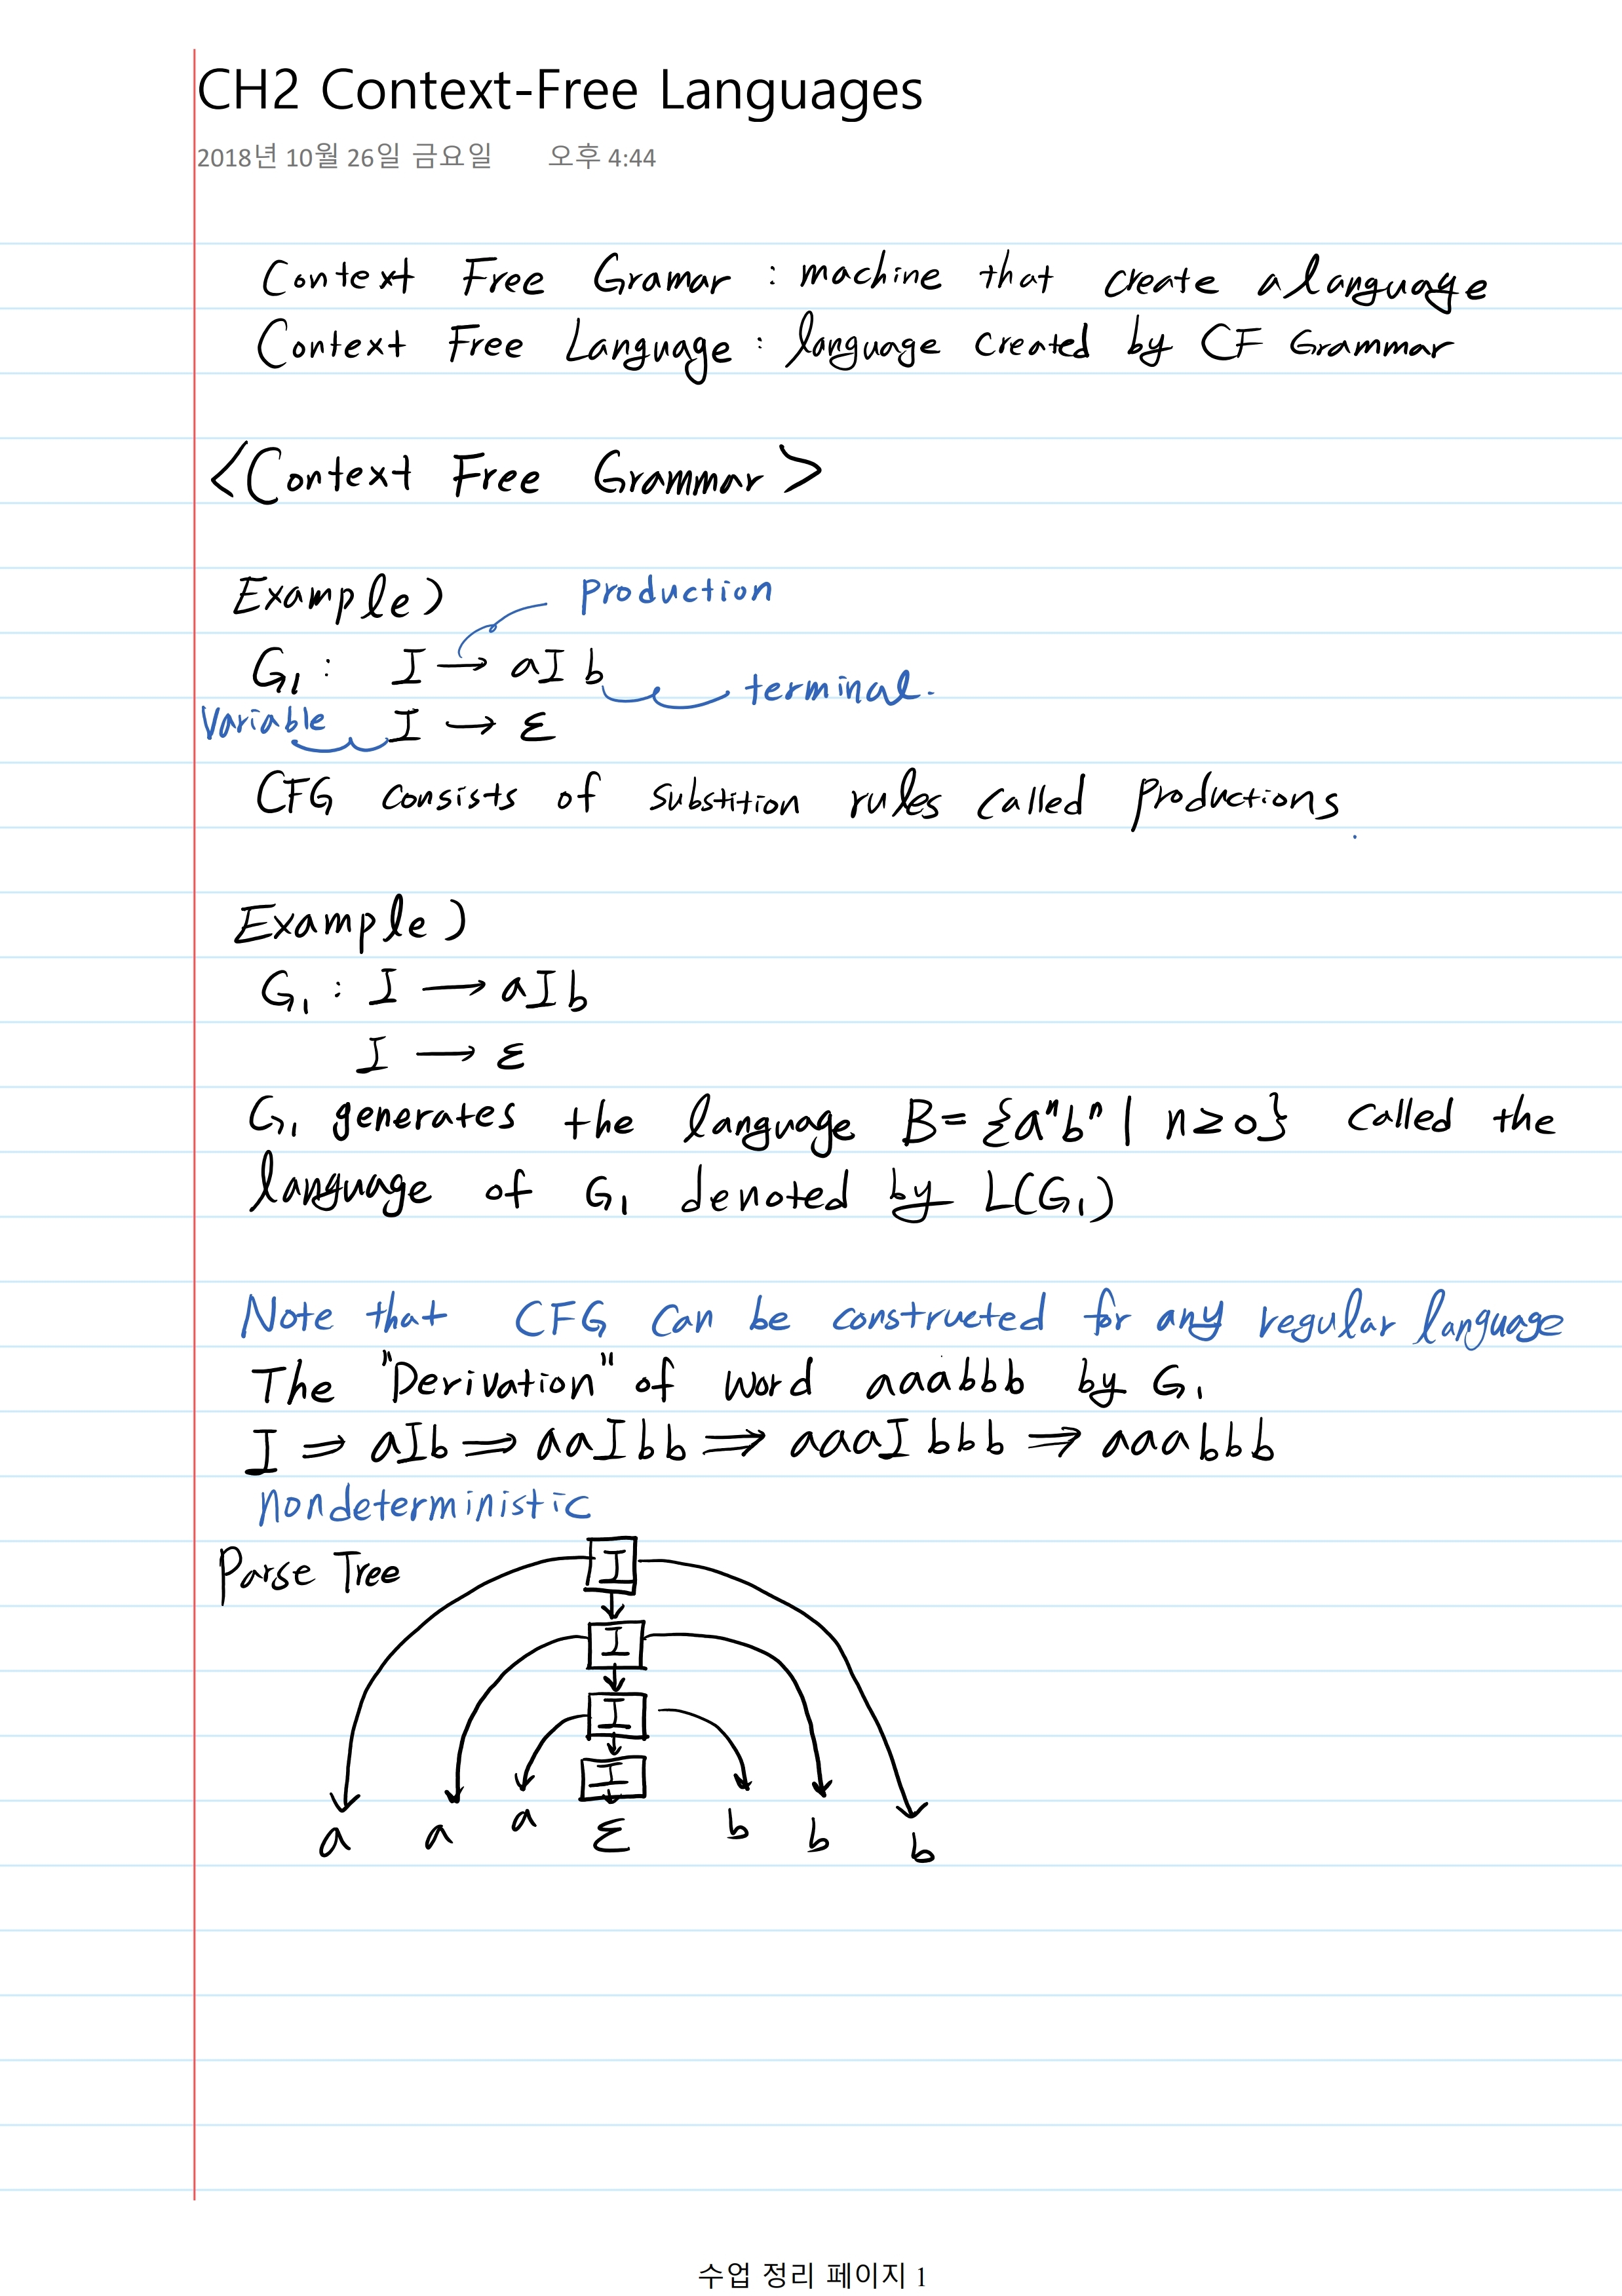 CH2 Context-Free Languages
2018년 10월 26일 금요일 오후 4:44
Context Free Gramar : machine that create a language
Context Free Language : language created by CF Grammar
<Context Free Grammar>
Example) production
G₁ : I → aIb terminal.
Variable I → ε
CFG consists of substition rules called productions
Example)
G₁ : I → aIb
I → ε
G₁ generates the language B = {aⁿbⁿ | n≥0} called the
language of G₁ denoted by L(G₁)
Note that CFG can be constructed for any regular language
The "Derivation" of word aaabbb by G₁
I ⇒ aIb ⇒ aaIbb ⇒ aaaIbbb ⇒ aaabbb
nondeterministic
Parse Tree I
I
I
I
a a a ε b b b
수업 정리 페이지 1